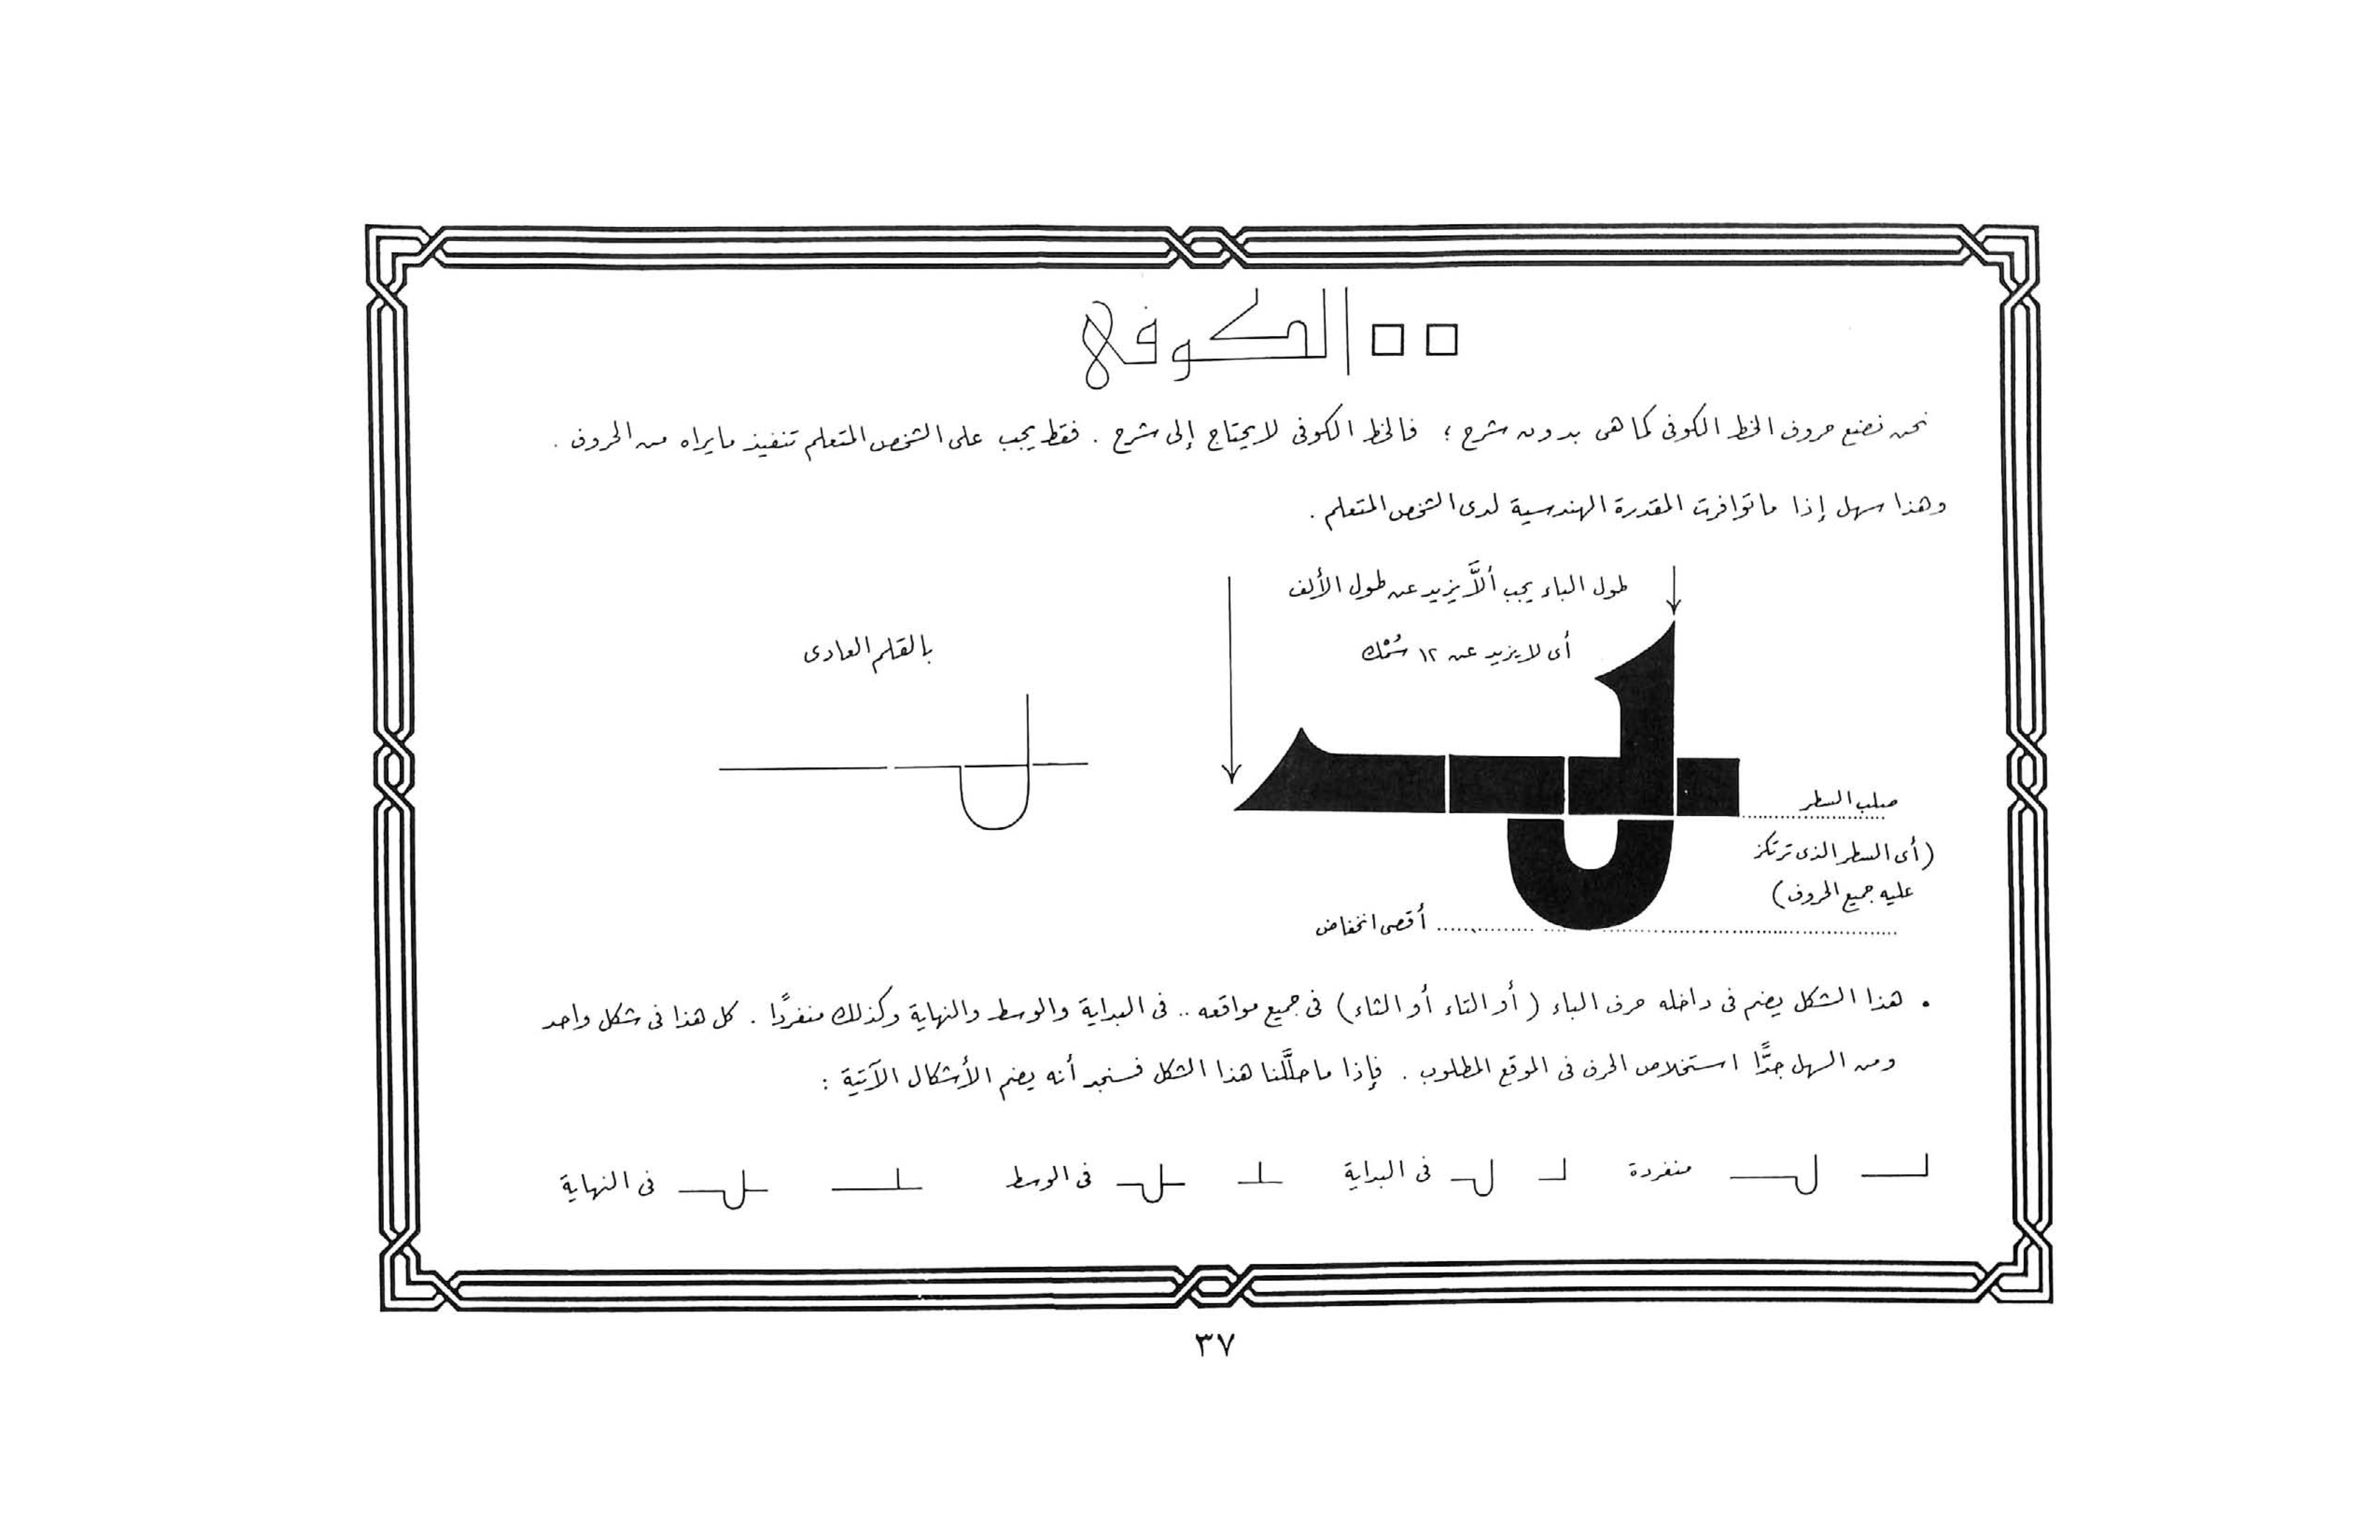 الكوفى
نحن نضع حروف الخط الكوفى كما هى بدون شرح ؛ فالخط الكوفى لا يحتاج إلى شرح . فقط يجب على الشخص المتعلم تنفيذ ما يراه من الحروف .
وهذا سهل إذا ما توافرت المقدرة الهندسية لدى الشخص المتعلم .
طول الباء يجب ألاَّ يزيد عن طول الألف
أى لا يزيد عن ١٢ سُمْك
بالقلم العادى
صلب السطر
(أى السطر الذى ترتكز
عليه جميع الحروف)
أقصى انخفاض
• هذا الشكل يضم فى داخله حرف الباء (أو التاء أو الثاء) فى جميع مواقعه .. فى البداية والوسط والنهاية وكذلك منفردًا . كل هذا فى شكل واحد
ومن السهل جدًّا استخلاص الحرف فى الموقع المطلوب . فإذا ما حللَّنا هذا الشكل فسنجد أنه يضم الأشكال الآتية :
منفردة فى البداية فى الوسط فى النهاية
٣٧